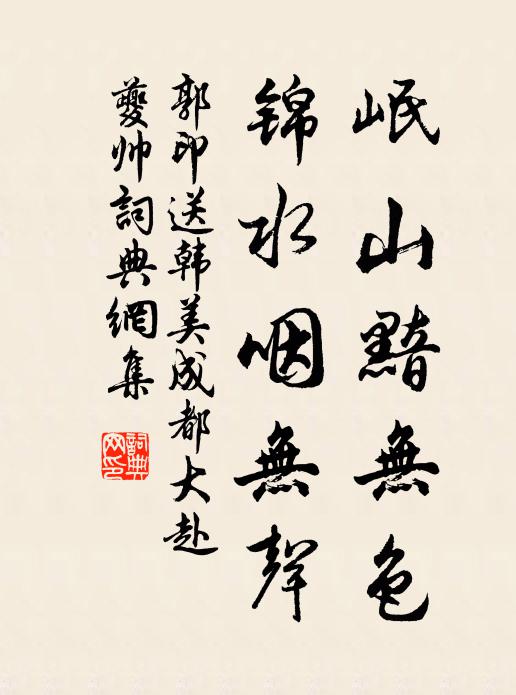 岷山黯無色
錦水咽無聲
郭印送韩美成都大赴
夔帅詞典網集
詞典网印